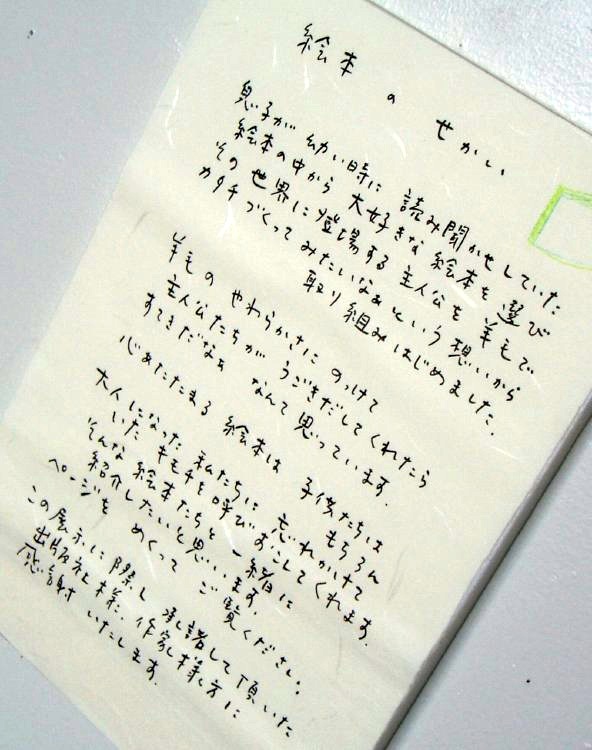 絵本のせかい
息子が幼い時に読み聞かせしていた
絵本の中から大好きな絵本を選び
その世界に登場する主人公を羊毛で
カタチづくってみたいなぁという想いから
取り組みはじめました。
羊毛のやわらかさにのっけて
主人公たちがうごきだしてくれたら
すてきだなぁなんて思っています。
心あたたまる絵本は子供たちは
もちろん
大人になった私たちに忘れかけて
いたキモチを呼びおこしてくれます。
そんな絵本たちと一緒に
紹介したいと思います。
ページをめくってご覧ください。
この展示に際し承諾して頂いた
出版社様、作家様方に
感謝いたします。